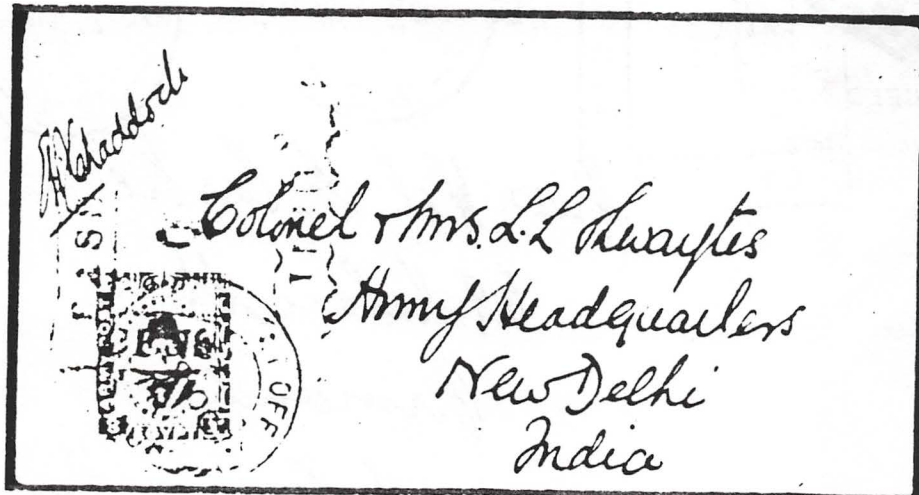 Colonel & Mrs. L. L. Thwaytes
Army Headquarters
New Delhi
India
OFF